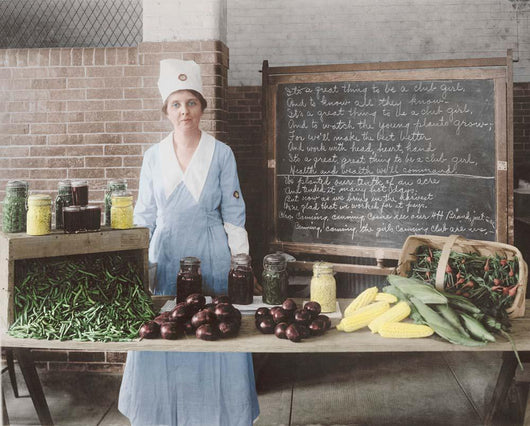 It's a great thing to be a club girl,
And to know all they know.
It's a great thing to be a club girl,
And to watch the young plants grow;
For we'll make the best better
And work with head, heart, hand
It's a great, great thing to be a club girl,
Health and wealth we'll command.
We planted over tenth of an acre
And tended it many hot days,
But now as we bring in the harvest
We're glad that we worked for it
Canning, canning Come see our 4H Brand,
Canning, canning, the girls Canning Club are we.